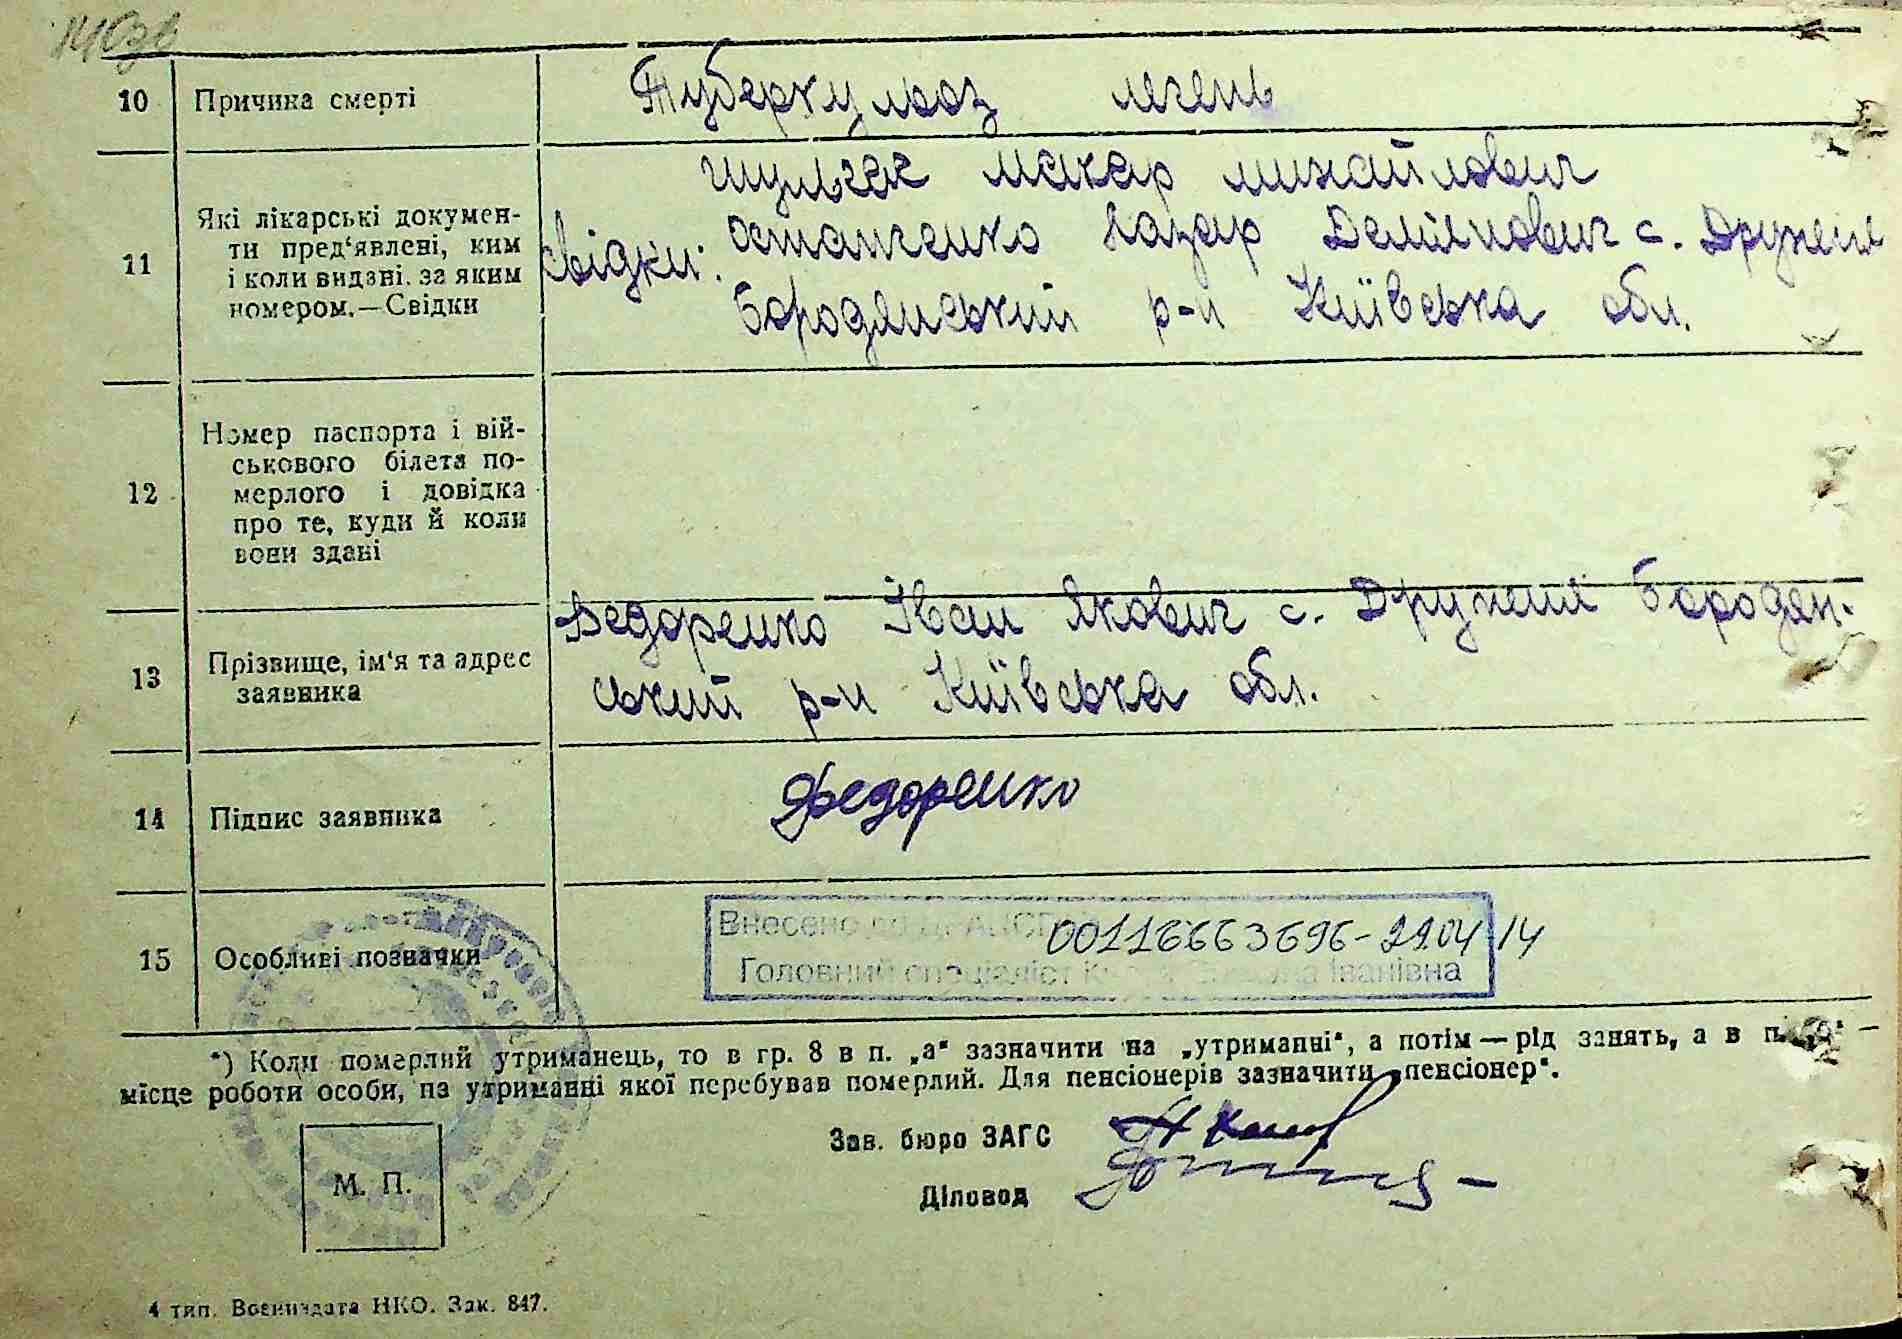 14 зв
10 Причина смерті Туберкульоз легень
11 Які лікарські докумен-
ти пред'явлені, ким
і коли видані. за яким
номером.—Свідки
Шульгак Макар Михайлович
Свідки: Остапченко Назар Демʼянович с. Дружня
Бородянський р-н Київська обл.
12 Номер паспорта і вій-
ськового білета по-
мерлого і довідка
про те, куди й коли
вони здані
13 Прізвище, ім'я та адрес
заявника
Федоренко Іван Якович с. Дружня Бородян-
ський р-н Київська обл.
14 Підпис заявника Федоренко
15 Особливі позначки
Внесено до ДРАЦСГ 00116663696-22.04.14
Головний спеціаліст Іванівна
*) Коли померлий утриманець, то в гр. 8 в п. „а“ зазначити на „утриманні“, а потім—рід занять, а в п.
місце роботи особи, на утриманні якої перебував померлий. Для пенсіонерів зазначити „пенсіонер“.
Зав. бюро ЗАГС
Діловод
М. П.
4 тип. Воениздата НКО. Зак. 847.